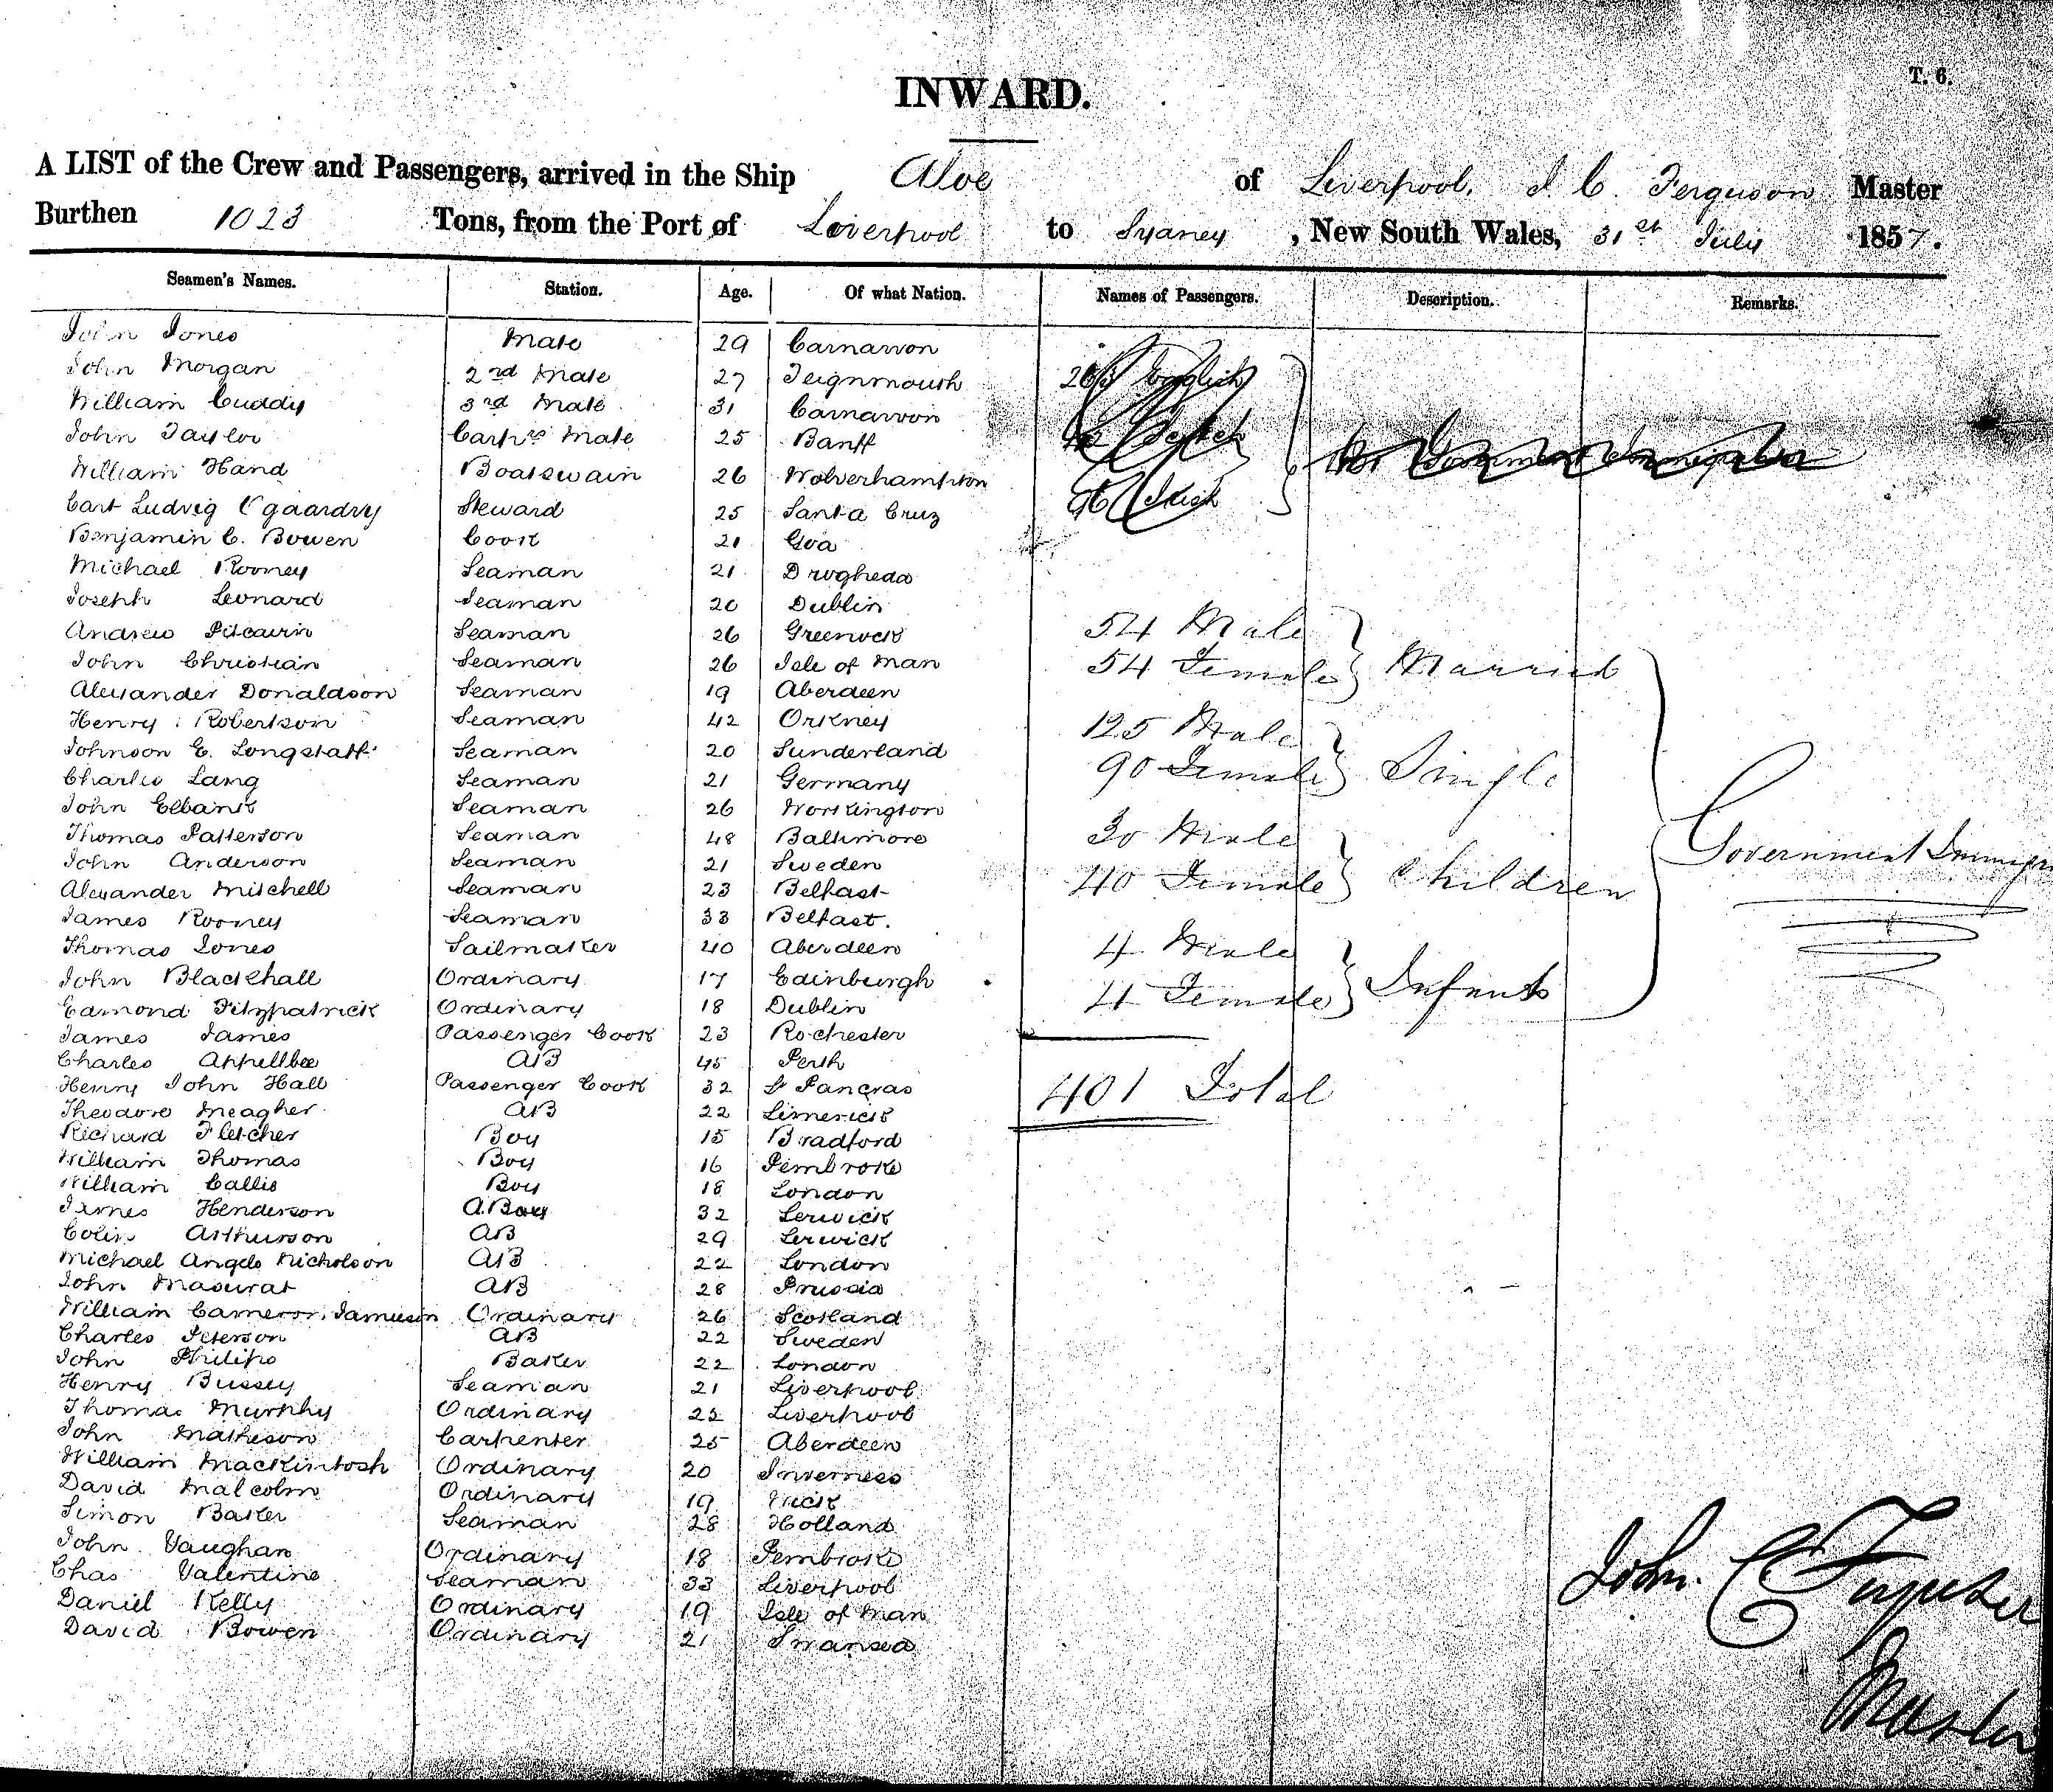 T. 6.
INWARD.
A LIST of the Crew and Passengers, arrived in the Ship Aloe of Liverpool, J. C. Ferguson Master
Burthen 1023 Tons, from the Port of Liverpool to Sydney, New South Wales, 31st July 1857.
Seamen's Names. Station. Age. Of what Nation. Names of Passengers. Description. Remarks.
John Jones Mate 29 Carnarvon
John Morgan 2nd Mate 27 Teignmouth
William Cuddy 3rd Mate 31 Carnarvon
John Taylor Carprs Mate 25 Banff
William Hand Boatswain 26 Wolverhampton
Cart Ludvig Steward 25 Santa Cruz
Benjamin C. Bowen Cook 21 Goa
Michael Rooney Seaman 21 Drogheda
Joseph Leonard Seaman 20 Dublin
Andrew Pitcairn Seaman 26 Greenock
John Christian Seaman 26 Isle of Man
Alexander Donaldson Seaman 19 Aberdeen
Henry Robertson Seaman 42 Orkney
Johnson E. Longstaff Seaman 20 Sunderland
Charles Lang Seaman 21 Germany
John Elbank Seaman 26 Workington
Thomas Patterson Seaman 48 Baltimore
John Anderson Seaman 21 Sweden
Alexander Mitchell Seaman 23 Belfast
James Rooney Seaman 33 Belfast.
Thomas Jones Sailmaker 40 Aberdeen
John Blackhall Ordinary 17 Edinburgh
Edmond Fitzpatrick Ordinary 18 Dublin
James James Passenger Cook 23 Rochester
Charles Appellbee AB 45 Perth
Henry John Hall Passenger Cook 32 St Pancras
Theodore Meagher AB 22 Limerick
Richard Fletcher Boy 15 Bradford
William Thomas Boy 16 Pembroke
William Callis Boy 18 London
James Henderson 32 Lerwick
Colin Arthurson AB 29 Lerwick
Michael Angelo Nicholson AB 22 London
John Masurat AB 28 Prussia
William Cameron Jamieson Ordinary 26 Scotland
Charles Peterson AB 22 Sweden
John Philips Baker 22 London
Henry Bussey Seaman 21 Liverpool
Thomas Murphy Ordinary 22 Liverpool
John Matheson Carpenter 25 Aberdeen
William Mackintosh Ordinary 20 Inverness
David Malcolm Ordinary 19 Wick
Simon Baker Seaman 28 Holland
John Vaughan Ordinary 18 Pembroke
Chas Valentine Seaman 33 Liverpool
Daniel Kelly Ordinary 19 Isle of Man
David Bowen Ordinary 21 Swansea
54 Male
54 Female Married
125 Male
90 Female Single
30 Male
40 Female Children
4 Male
4 Female Infants
Government
401 Total
John C Ferguson
Master